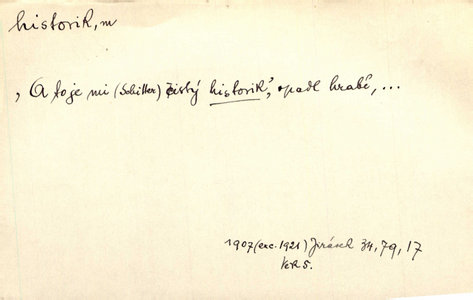 historik, m
‚A to je mi (Schiller) čistý historik‘, opadl hrabě, ...
1907 (exc. 1921) Jirásek 34, 79, 17